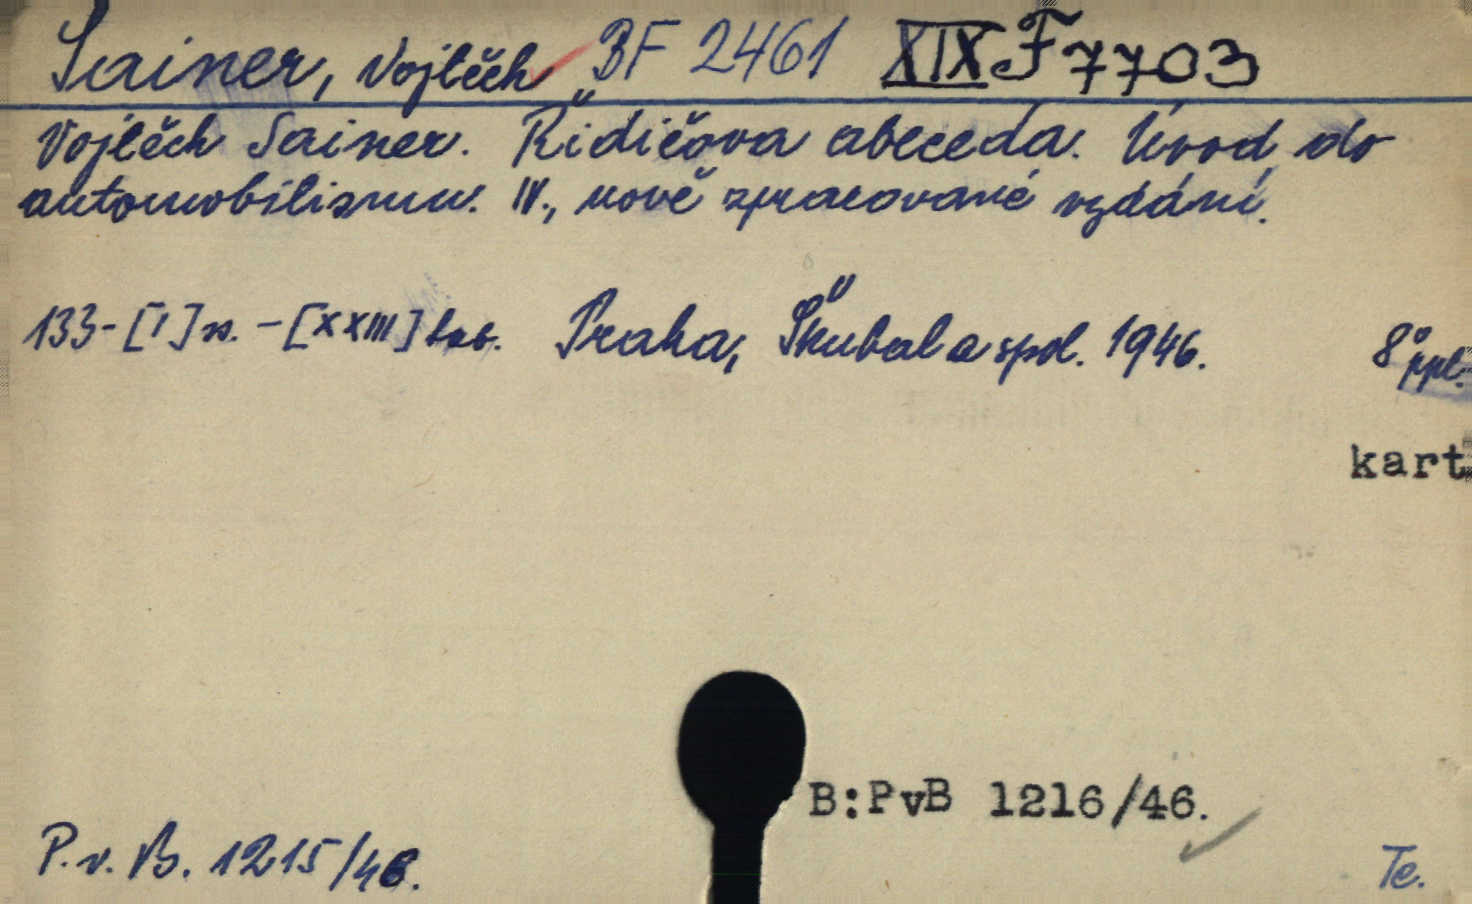 Sainer, Vojtěch BF 2461 XIX F 7703
Vojtěch Sainer. Řidičova abeceda. Úvod do
automobilismu. IV., nově zpracované vydání.
133-[I] s. - [XXIII] tab. Praha, Škubal a spol. 1946. 8° ppl.
kart.
B:PvB 1216/46.
P.v.B. 1215/46. Te.